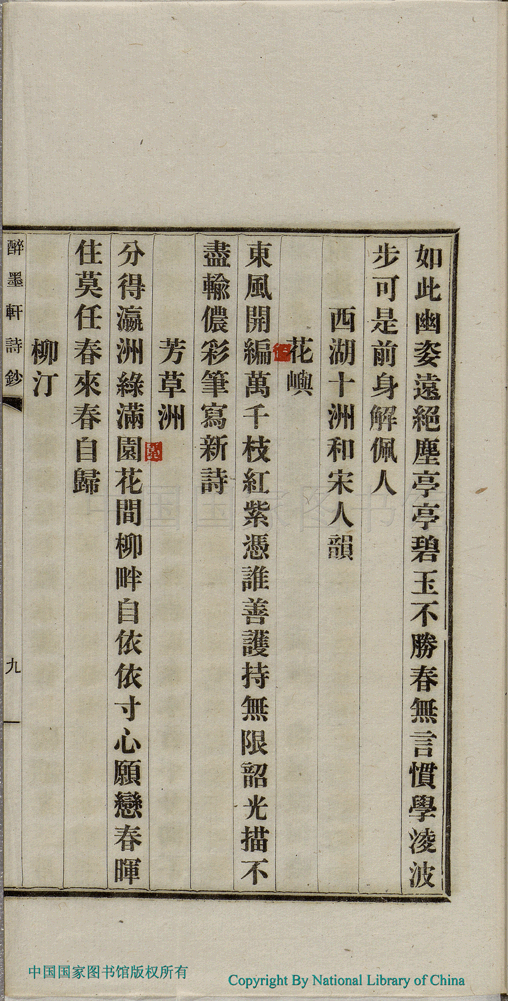 如此幽姿遠絕塵亭亭碧玉不勝春無言慣學凌波
步可是前身解佩人
西湖十洲和宋人韻
花嶼
東風開編萬千枝紅紫憑誰善護持無限韶光描不
盡輸儂彩筆寫新詩
芳草洲
分得瀛洲綠滿園花間柳畔自依依寸心願戀春暉
住莫任春來春自歸
柳汀
醉墨軒詩鈔
九
中国国家图书馆版权所有
Copyright By National Library of China